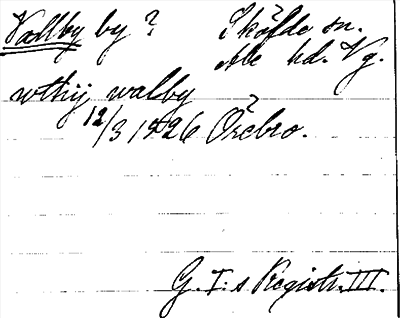 Vallby by ? Sköfde sn.
Ale hd. Vg.
wthij walby
12/3 1426 Örebro. ?
G. T:s Registr. III.